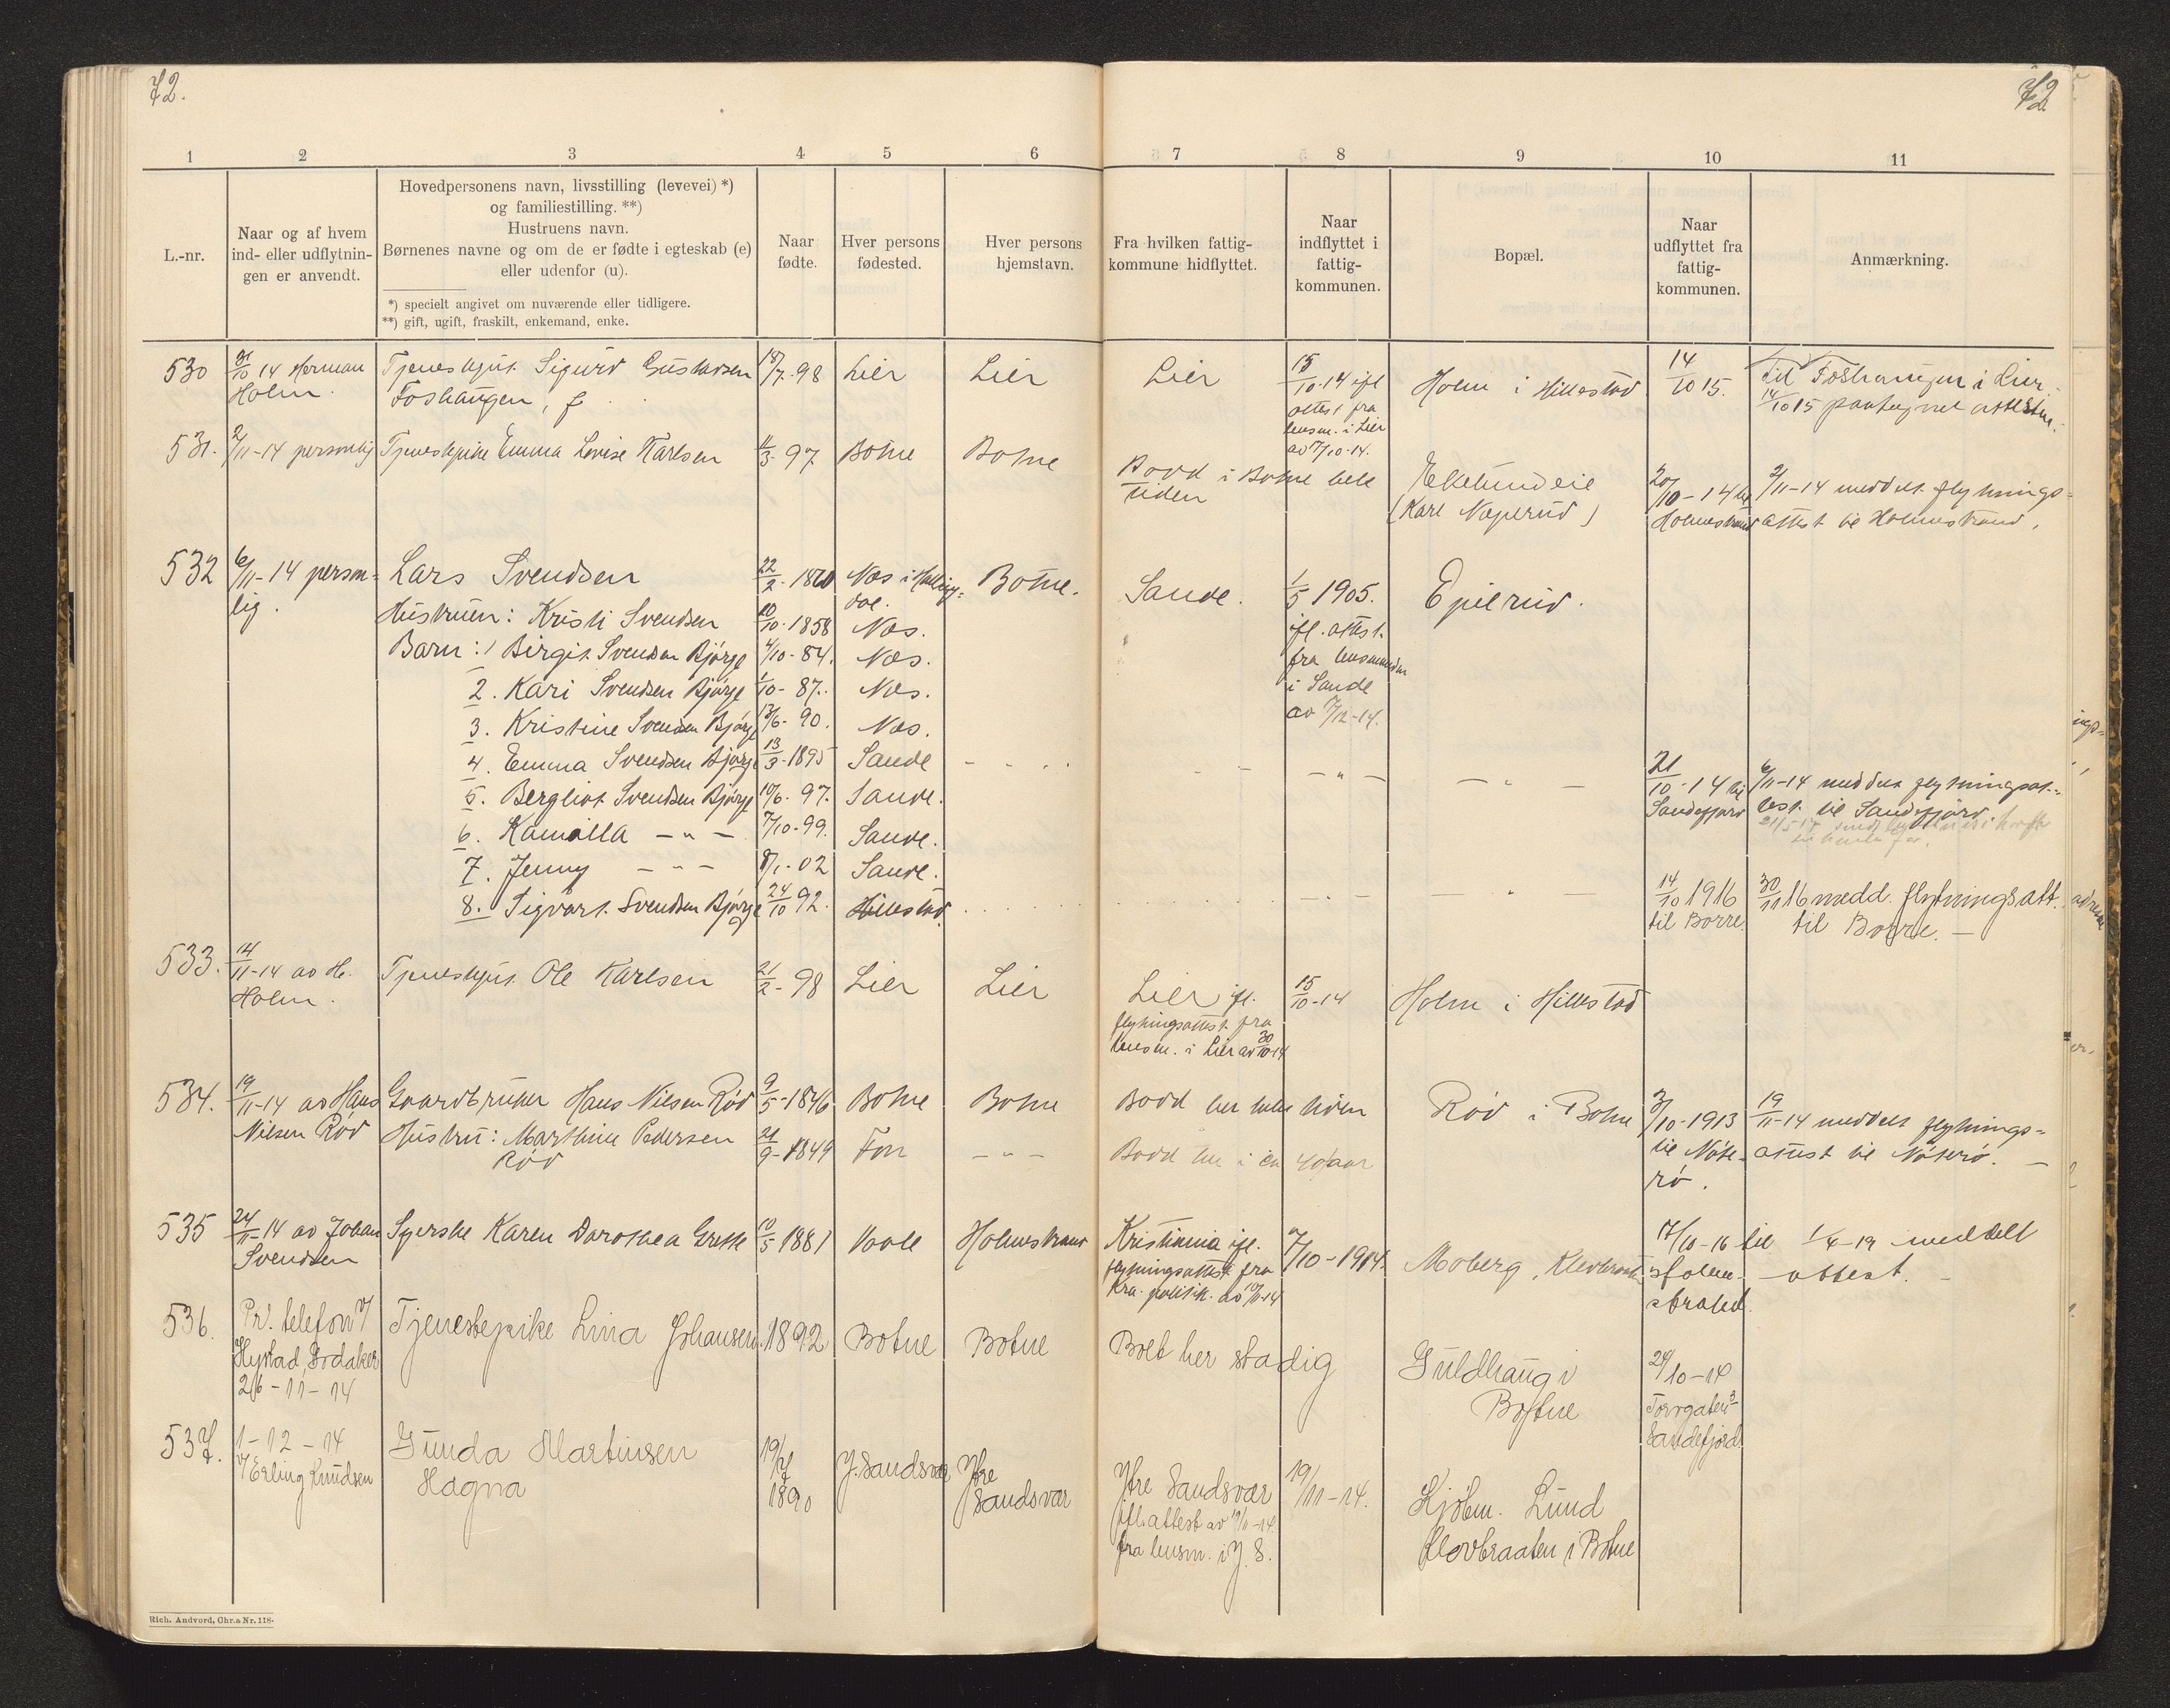 72.
72
1 2 3 4 5 6 7 8 9 10 11
L.-nr.
Naar og af hvem
ind- eller udflytnin-
gen er anvendt.
Hovedpersonens navn, livsstilling (levevei) *)
og familiestilling. **)
Hustruens navn.
Børnenes navne og om de er fødte i egteskab (e)
eller udenfor (u).
*) specielt angivet om nuværende eller tidligere.
**) gift, ugift, fraskilt, enkemand, enke.
Naar
fødte.
Hver persons
fødested.
Hver persons
hjemstavn.
Fra hvilken fattig-
kommune hidflyttet.
Naar
indflyttet i
fattig-
kommunen.
Bopæl.
Naar
udflyttet fra
fattig-
kommunen.
Anmærkning.
530 31/10 14 Herman Tjenestgut Sigurd Gustavsen 18/7-98 Lier Lier Lier 15/10-14 ifl Holm i Hillestad 14/10 15. Til Foshaugen i Lier
Holm. Foshaugen, attest fra 14/10 15 paategnet attesten.
lensm. i Lier
av 17/10-14.
531. 2/11-14 personlig Tjenestepike Emma Lovise Karlsen 11/3 97 Botne Botne
Bodd i Botne hele Ekelundeie 20/10-14 til 2/11-14 meddelt flytnings-
tiden (Karl Neperud) Holmestrand attest til Holmestrand.
532 6/11-14 person- Lars Svendsen 22/2-1860 Næs i Halling- Botne. Sande. 1/5 1905. Epilrud.
lig. dal.
Hustruen: Kristi Svendsen 10/10-1858 Næs. ifl. attest
Barn: 1 Birgit Svendsen Bjørge 4/10-84. Næs. fra lensmanden
2. Kari Svendsen Bjørge 1/10-87. Næs. i Sande
3. Kristine Svendsen Bjørge 13/6-90. Næs. av 7/12-14.
4. Emma Svendsen Bjørge 13/3-1895 Sande - " - - " - 21/10-14 til 6/11-14 meddelt flytningsat-
5. Bergliot Svendsen Bjørge 10/6-97. Sande. Sandefjord test til Sandefjord.
6. Kamilla - " - 7/10-99. Sande.
7. Jenny - " - 8/1-02 Sande.
8. Sigvart Svendsen Bjørge 24/10 92. Hillestad - " - - " - 14/10 1916 30/11 16 medd. flytningsatt.
til Borre. til Borre. -
533. 14/11-14 av H. Tjenestgut Ole Karlsen 21/2-98 Lier Lier Lier ifl. 15/10-14 Holm i Hillestad
Holm. flytningsattest fra
lensm. i Lier av 30/10-14
534. 19/11-14 av Hans Gaardbruker Hans Nilsen Rød 9/5-1846 Botne Botne Bodd her hele tiden Rød i Botne 3/10-1913 19/11-14 meddelt flytnings-
Nilsen Rød Hustru: Marthine Pedersen 21/9-1849 Fon - " - Bodd her i ca 40 aar til Nøte- attest til Nøterø. -
Rød rø.
535 24/11-14 av Johan Syerske Karen Dorothea Grette 10/5 1881 Vaale Holmestrand Kristiania ifl. 7/10-1914. Moberg, Klevbraaten 17/10-16 til meddelt
Svendsen flytningsattest fra Holme- attest. -
Kra. politik. av 10/11-14 strand.
536. Pr. telefon v/ Tjenestepike Lina Johansen. 1892 Botne Botne Boet her stadig Guldhaug i 29/10-14
Hystad, Ordaker Botne Torvgaten 3
26-11-14 Sandefjord
537. 1-12-14 Gunda Martinsen 19/7 Y. Sandsvær Ytre Ytre Sandsvær 19/11-14. Kjøbm. Lund
v/ Erling Knudsen Hagna 1890 Sandsvær ifl. attest av 19/11-14 Klovbraaten i Botne
fra lensm. i Y. S.
Rich. Andvord, Chr.a Nr. 118.